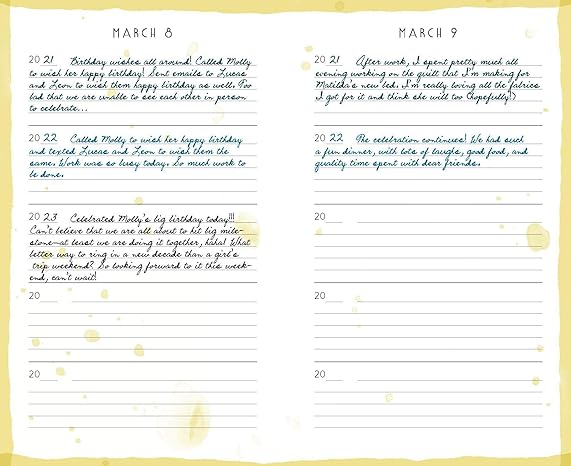 MARCH 8
2021 Birthday wishes all around! Called Molly
to wish her happy birthday! Sent emails to Lucas
and Leon to wish them happy birthday as well. Too
bad that we are unable to see each other in person
to celebrate...
2022 Called Molly to wish her happy birthday
and texted Lucas and Leon to wish them the
same. Work was so busy today. So much work to
be done.
2023 Celebrated Molly's big birthday today!!!
Can't believe that we are all about to hit big mile-
stone—at least we are doing it together, haha! What
better way to ring in a new decade than a girl's
trip weekend? So looking forward to it this week-
end, can't wait!
20
20
MARCH 9
2021 After work, I spent pretty much all
evening working on the quilt that I'm making for
Matilda's new bed. I'm really loving all the fabrics
I got for it and think she will too (hopefully!)
2022 The celebration continues! We had such
a fun dinner, with lots of laughs, good food, and
quality time spent with dear friends.
20
20
20